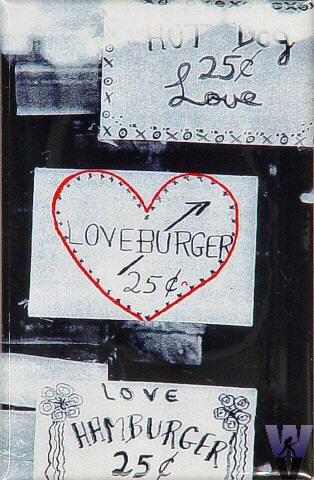 HOT Dog
25¢
Love
XOXOXOXOXOXOXOX
LOVEBURGER
25¢
LOVE
HAMBURGER
25¢
W